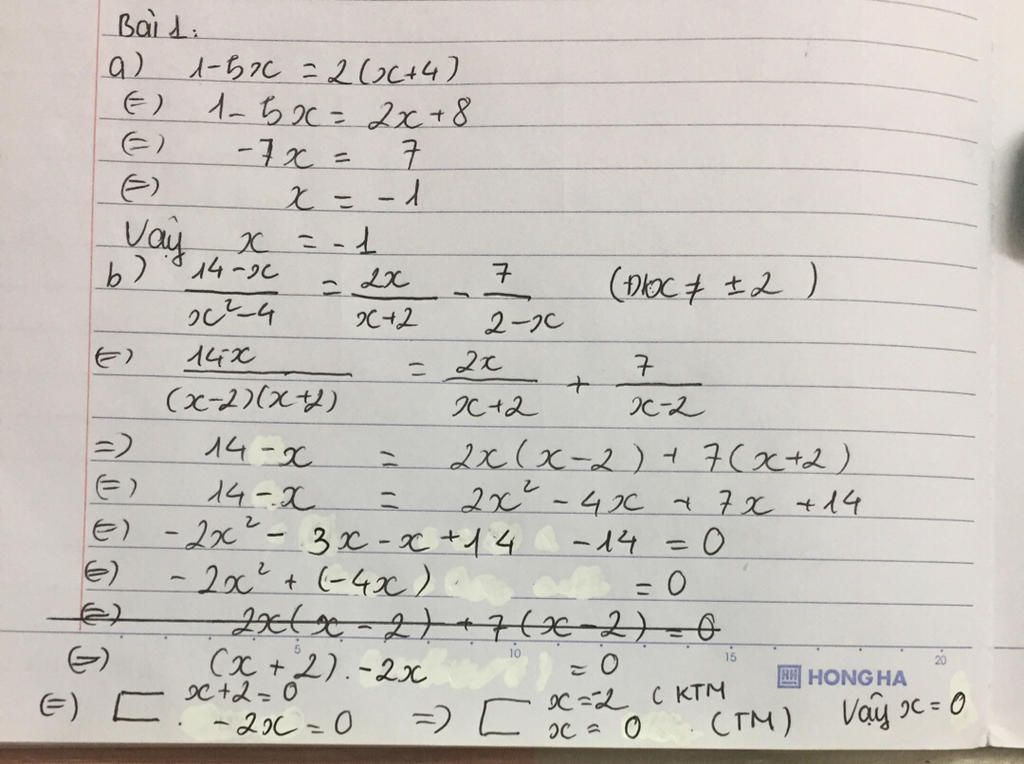 Bài 1:
a) 1-5x = 2(x+4)
(=) 1-5x = 2x+8
(=) -7x = 7
(=) x = -1
Vậy x = -1
b) \frac{14-x}{x²-4} = \frac{2x}{x+2} - \frac{7}{2-x} (Đkx ≠ ±2)
(=) \frac{14-x}{(x-2)(x+2)} = \frac{2x}{x+2} + \frac{7}{x-2}
=) 14-x = 2x(x-2) + 7(x+2)
(=) 14-x = 2x² - 4x + 7x +14
(=) -2x² - 3x - x +14 -14 = 0
(=) -2x² + (-4x) = 0
(=) 2x(x-2) + 7(x-2) = 0
5 10 15 20
(=) (x+2). -2x = 0
HONG HA
(=) [ x+2=0 =) [ x=-2 (KTM
-2x=0 x= 0 (TM) Vậy x=0